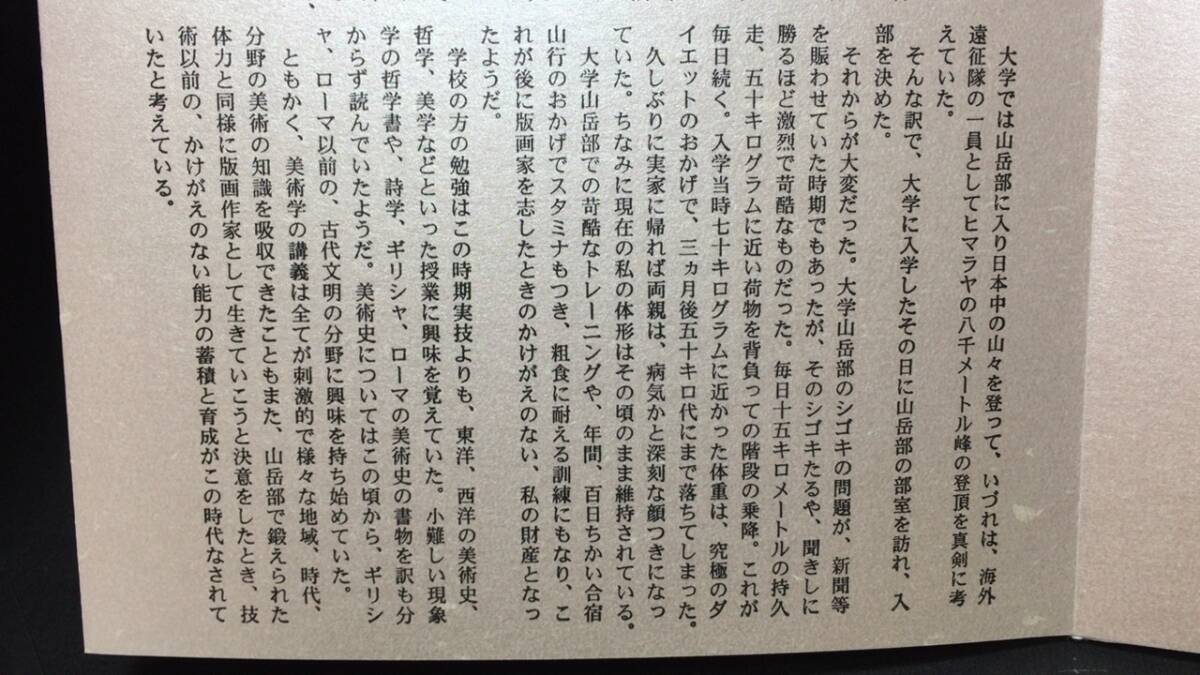 大学では山岳部に入り日本中の山々を登って、いづれは、海外
遠征隊の一員としてヒマラヤの八千メートル峰の登頂を真剣に考
えていた。
そんな訳で、大学に入学したその日に山岳部の部室を訪れ、入
部を決めた。
それからが大変だった。大学山岳部のシゴキの問題が、新聞等
を賑わせていた時期でもあったが、そのシゴキたるや、聞きしに
勝るほど激烈で苛酷なものだった。毎日十五キロメートルの持久
走、五十キログラムに近い荷物を背負っての階段の乗降。これが
毎日続く。入学当時七十キログラムに近かった体重は、究極のダ
イエットのおかげで、三ヵ月後五十キロ代にまで落ちてしまった。
久しぶりに実家に帰れば両親は、病気かと深刻な顔つきになっ
ていた。ちなみに現在の私の体形はその頃のまま維持されている。
大学山岳部での苛酷なトレーニングや、年間、百日ちかい合宿
山行のおかげでスタミナもつき、粗食に耐える訓練にもなり、こ
れが後に版画家を志したときのかけがえのない、私の財産となっ
たようだ。
学校の方の勉強はこの時期実技よりも、東洋、西洋の美術史、
哲学、美学などといった授業に興味を覚えていた。小難しい現象
学の哲学書や、詩学、ギリシャ、ローマの美術史の書物を訳も分
からず読んでいたようだ。美術史についてはこの頃から、ギリシ
ャ、ローマ以前の、古代文明の分野に興味を持ち始めていた。
ともかく、美術学の講義は全てが刺激的で様々な地域、時代、
分野の美術の知識を吸収できたこともまた、山岳部で鍛えられた
体力と同様に版画作家として生きていこうと決意をしたとき、技
術以前の、かけがえのない能力の蓄積と育成がこの時代なされて
いたと考えている。